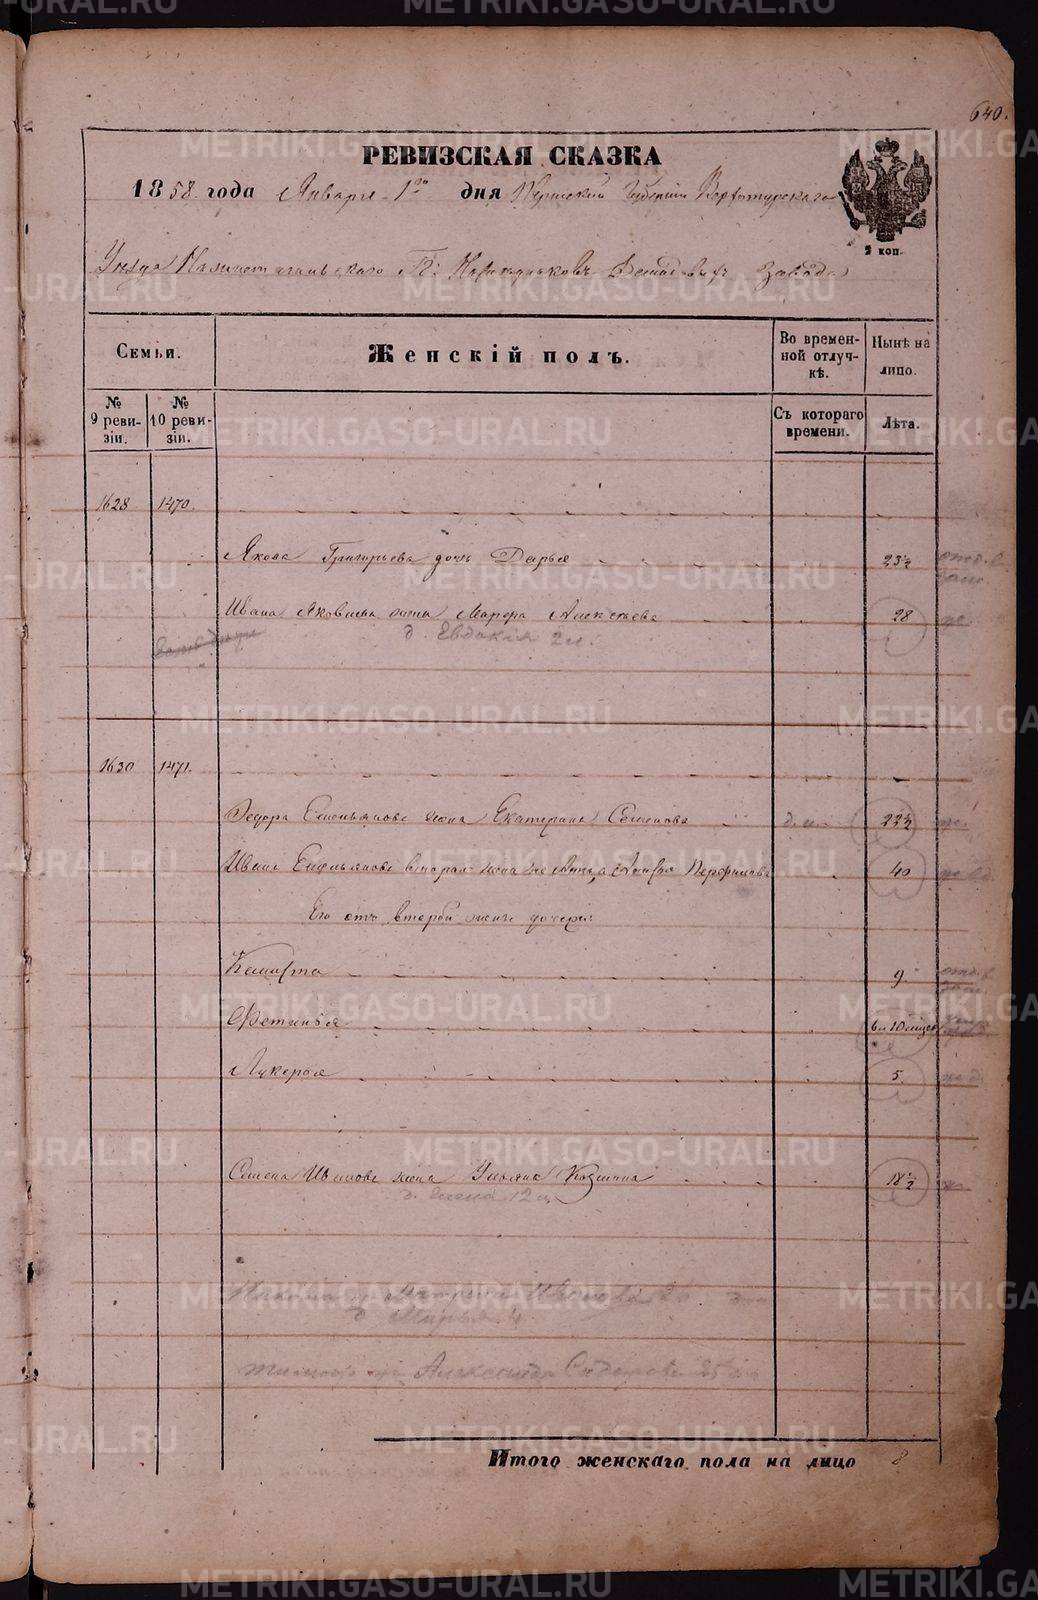 640.
РЕВИЗСКАЯ СКАЗКА
1858 года Января 1го дня Пермской Губернии Верхотурскаго
2 коп.
Уезда Нижнетагильскаго Г: Наследниковъ Демидовыхъ завода
Семьи.
Женскій полъ.
Во времен-
ной отлуч-
кѣ.
Нынѣ на
лицо.
№
9 реви-
зіи.
№
10 реви-
зіи.
Съ котораго
времени.
Лѣта.
1628 1470.
Якова Григорьева дочь Дарья 23½
Ивана Яковлева жена Марфа Алексѣева 28
д. Евдокія 2 м.
1630 1471.
Федора Емельянова жена Екатерина Семенова 22½
Ивана Емельянова вторая жена Перфильева 40
Его отъ второй жены дочери:
9
Фетинья
Лукерья 5
Семена Иванова жена Ульяна Козмина 18½
д. Елена 12
Ивановa
д. Марья 4
Александра Сидорова 25
Итого женскаго пола на лицо 8
METRIKI.GASO-URAL.RU